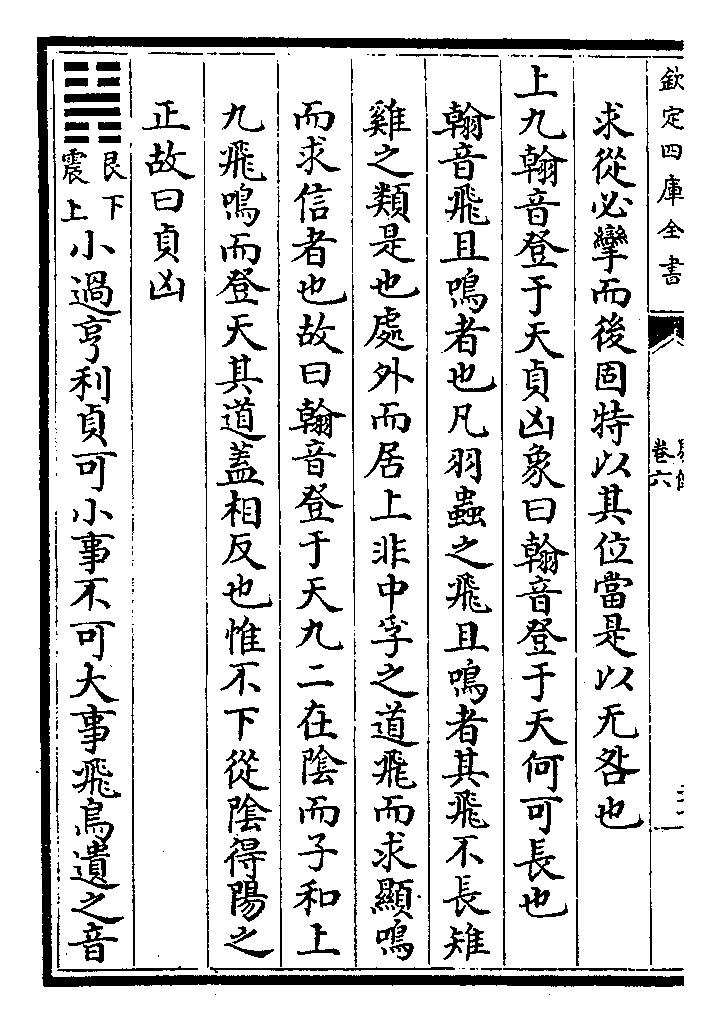 欽定四庫全書
卷六
求從必攣而後固特以其位當是以无咎也
上九翰音登于天貞凶象曰翰音登于天何可長也
翰音飛且鳴者也凡羽蟲之飛且鳴者其飛不長雉
雞之類是也處外而居上非中孚之道飛而求顯鳴
而求信者也故曰翰音登于天九二在陰而子和上
九飛鳴而登天其道蓋相反也惟不下從陰得陽之
正故曰貞凶
䷽艮下震上小過亨利貞可小事不可大事飛鳥遺之音